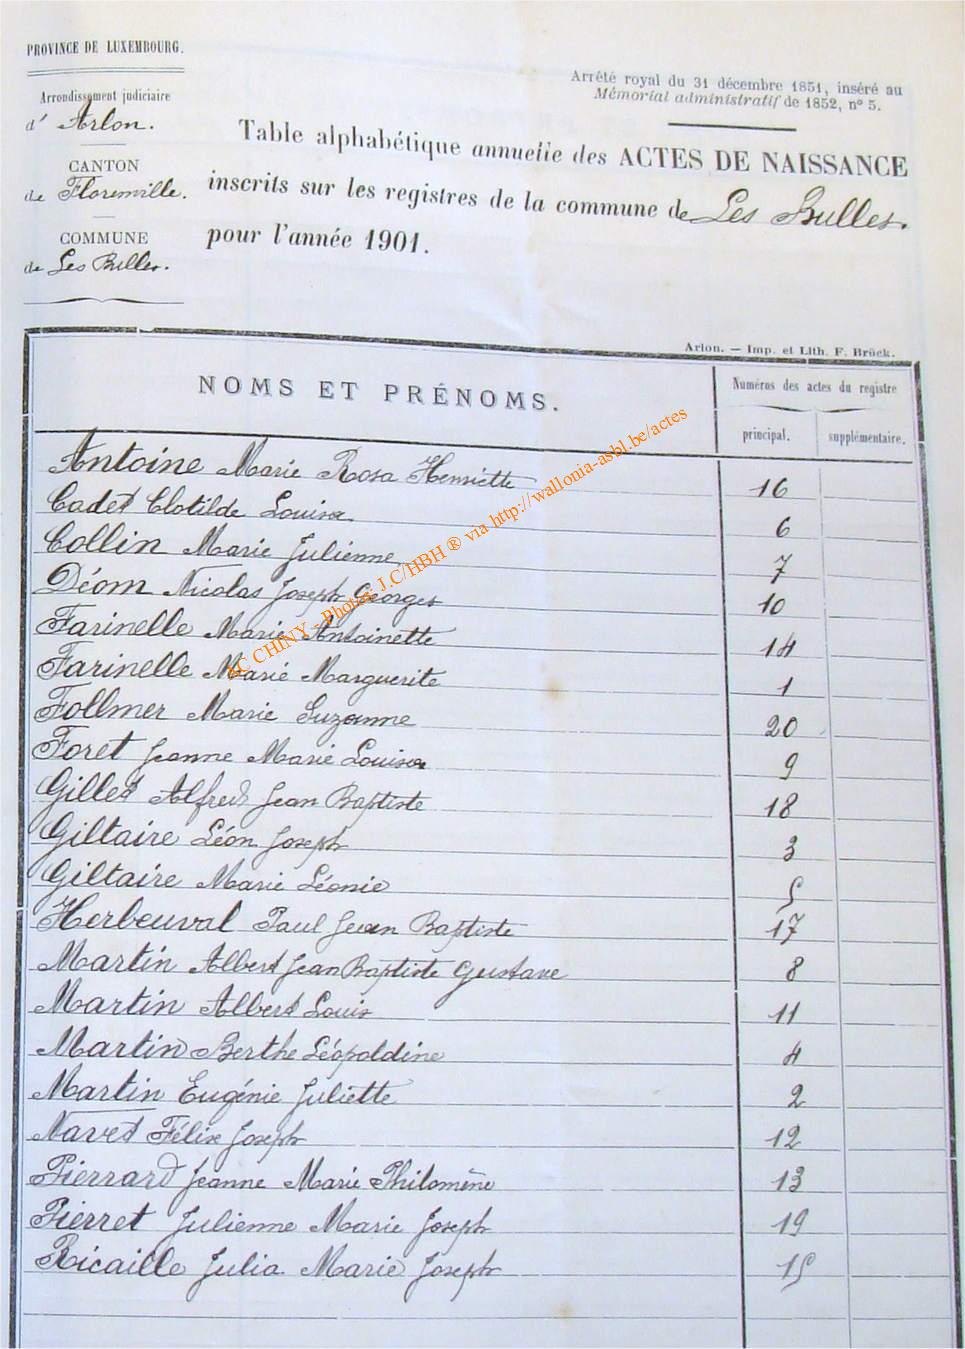 PROVINCE DE LUXEMBOURG.
Arrondissement judiciaire
d' Arlon.
CANTON
de Florenville.
COMMUNE
de Les Bulles.
Arrêté royal du 31 décembre 1851, inséré au
Mémorial administratif de 1852, n° 5.
Table alphabétique annuelle des ACTES DE NAISSANCE
inscrits sur les registres de la commune de Les Bulles.
pour l'année 1901.
Arlon. — Imp. et Lith. F. Brück.
NOMS ET PRÉNOMS.
Numéros des actes du registre
principal. supplémentaire.
Antoine Marie Rosa Henriette 16
Cadet Clotilde Louise 6
Collin Marie Julienne 7
Déom Nicolas Joseph Georges 10
Farinelle Marie Antoinette 14
Farinelle Marie Marguerite 1
Follmer Marie Suzanne 20
Foret Jeanne Marie Louise 9
Gillet Alfred Jean Baptiste 18
Giltaire Léon Joseph 3
Giltaire Marie Léonie 5
Herbeuval Paul Jean Baptiste 17
Martin Albert Jean Baptiste Gustave 8
Martin Albert Louis 11
Martin Berthe Léopoldine 4
Martin Eugénie Juliette 2
Navet Félix Joseph 12
Pierrard Jeanne Marie Philomène 13
Pierret Julienne Marie Joseph 19
Ricaille Julia Marie Joseph 15
AC CHINY - Photos J.C/HBH ® via http://wallonia-asbl.be/actes